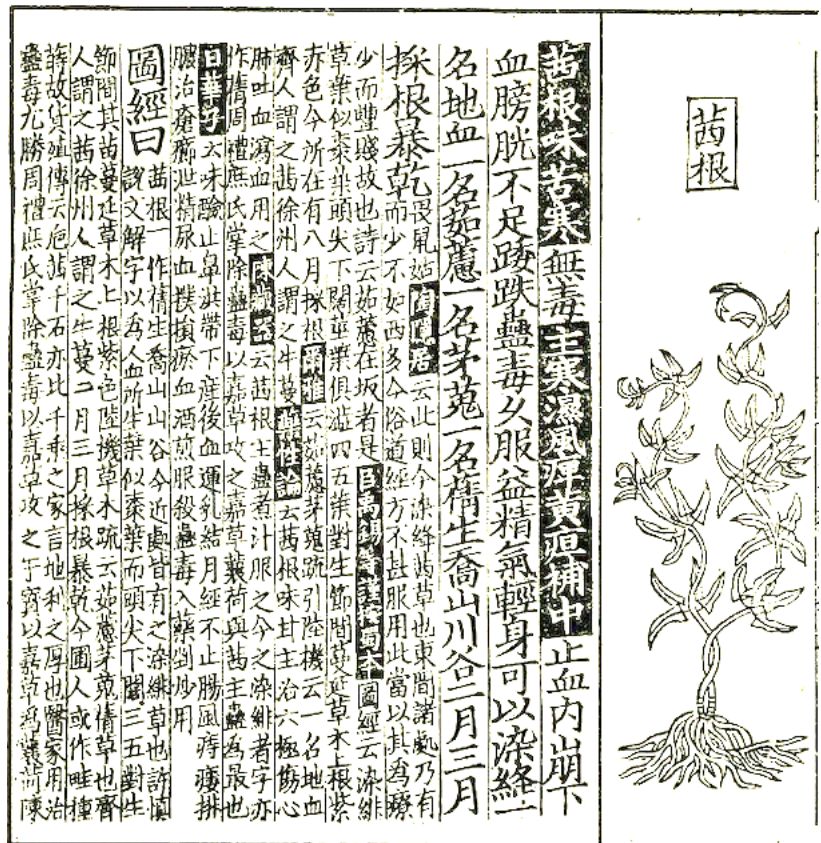 茜根
茜根味苦寒無毒主寒濕風痺黃疸補中止血內崩下
血膀胱不足踒跌蠱毒久服益精氣輕身可以染絳一
名地血一名茹藘一名茅蒐一名蒨生喬山川谷二月三月
採根暴乾畏鼠姑陶隱居云此則今染絳茜草也東間諸處乃有
而少不如西多今俗道經方不甚服用此當以其為療
少而豐賤故也詩云茹藘在坂者是臣禹錫等謹按蜀本圖經云染緋
草葉似棗葉頭尖下闊莖葉俱澁四五葉對生節間蔓延草木上根紫
赤色今所在有八月採根爾雅云茹藘茅蒐䟽引陸機云一名地血
齊人謂之茜徐州人謂之牛蔓藥性論云茜根味甘主治六極傷心
肺吐血瀉血用之陳藏器云茜根主蠱煮汁服之今之染緋者字亦
作蒨周禮庶氏掌除蠱毒以嘉草攻之嘉草蘘荷與茜主蠱為最也
日華子云味醶止鼻洪帶下產後血運乳結月經不止腸風痔瘻排
膿治瘡癤泄精尿血撲損瘀血酒煎服殺蠱毒入藥剉炒用
圖經曰茜根一作蒨生喬山山谷今近處皆有之染緋草也許慎
說文解字以為人血所生葉似棗葉而頭尖下闊三五對生
節間其苗蔓延草木上根紫色陸機草木疏云茹藘茅蒐蒨草也齊
人謂之茜徐州人謂之牛蔓二月三月採根暴乾今圃人或作畦種
蒔故貨殖傳云巵茜千石亦比千乘之家言地利之厚也醫家用治
蠱毒尤勝周禮庶氏掌除蠱毒以嘉草攻之干寶以嘉草為蘘荷陳